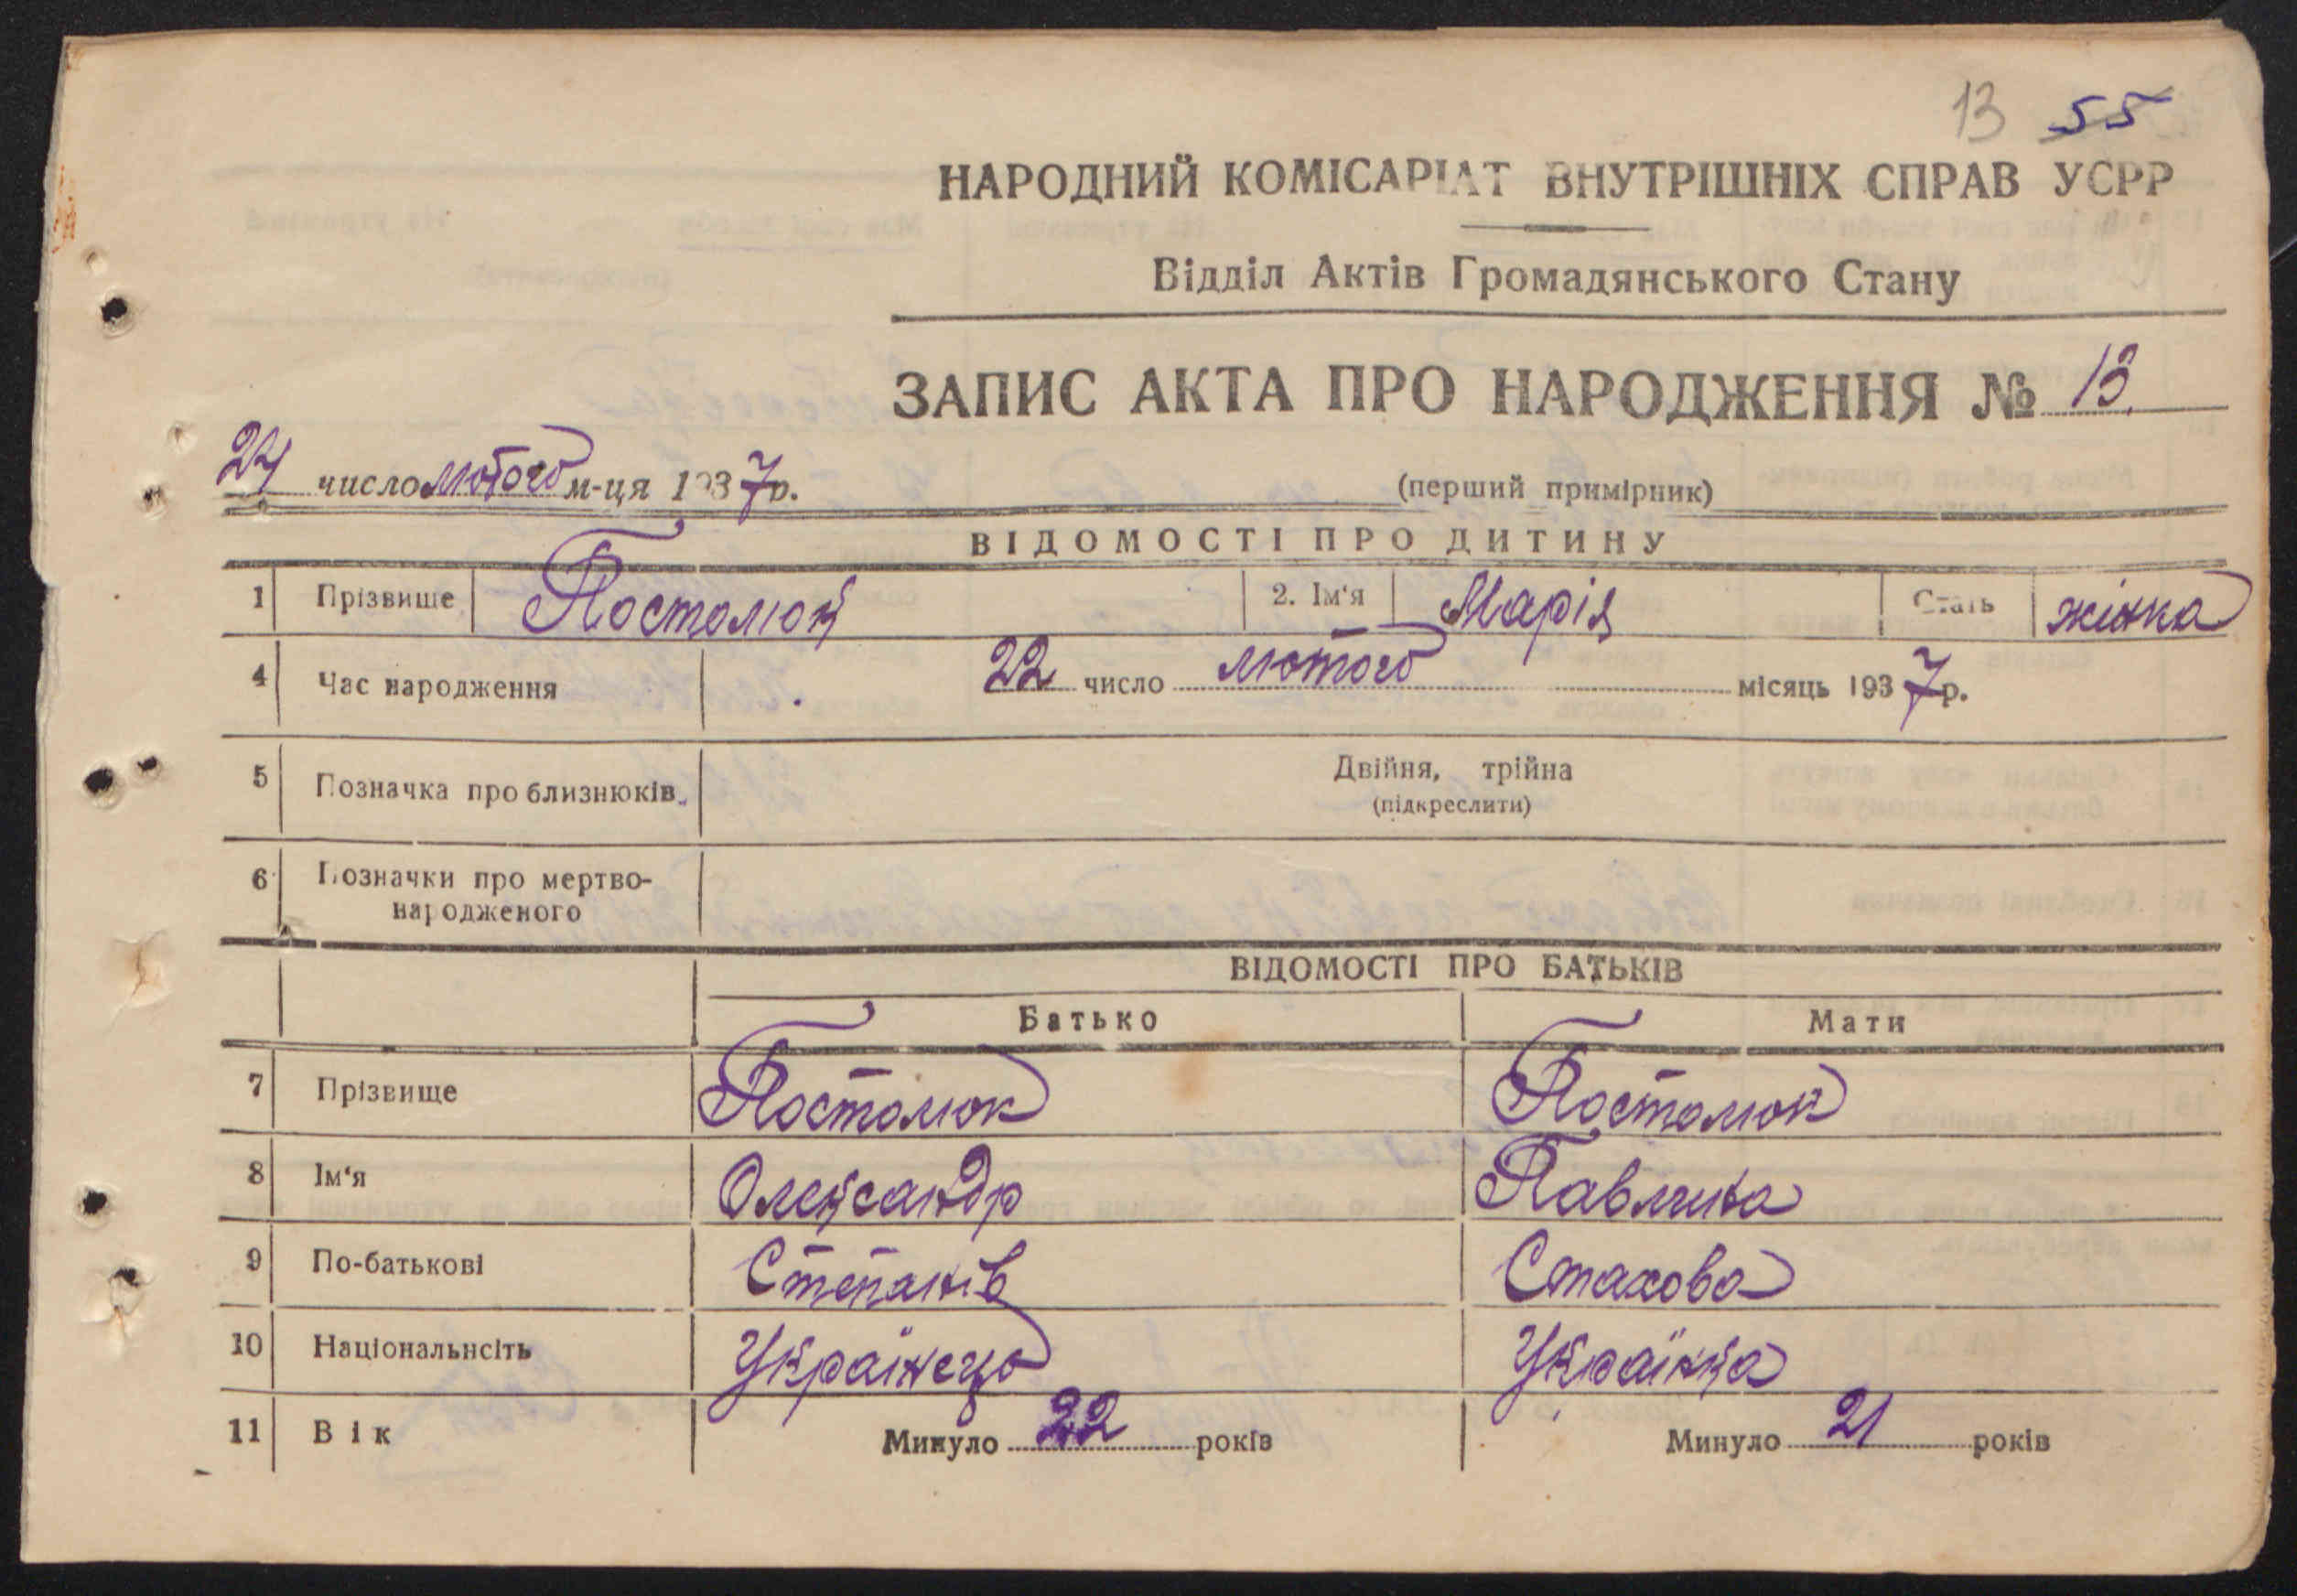 13 55
НАРОДНИЙ КОМІСАРІАТ ВНУТРІШНІХ СПРАВ УСРР
Відділ Актів Громадянського Стану
ЗАПИС АКТА ПРО НАРОДЖЕННЯ № 13.
24 число лютого м-ця 1937р.
(перший примірник)
ВІДОМОСТІ ПРО ДИТИНУ
1 Прізвище Постолюк 2. Ім'я Марія Стать жінка
4 Час народження 22 число лютого місяць 1937р.
5 Позначка про близнюків. Двійня, трійна
(підкреслити)
6 Позначки про мертво-
народженого
ВІДОМОСТІ ПРО БАТЬКІВ
Батько Мати
7 Прізвище Постолюк Постолюк
8 Ім'я Олександр Павлина
9 По-батькові Степанів Стахова
10 Національнсіть Українець Українка
11 Вік Минуло 22 років Минуло 21 років